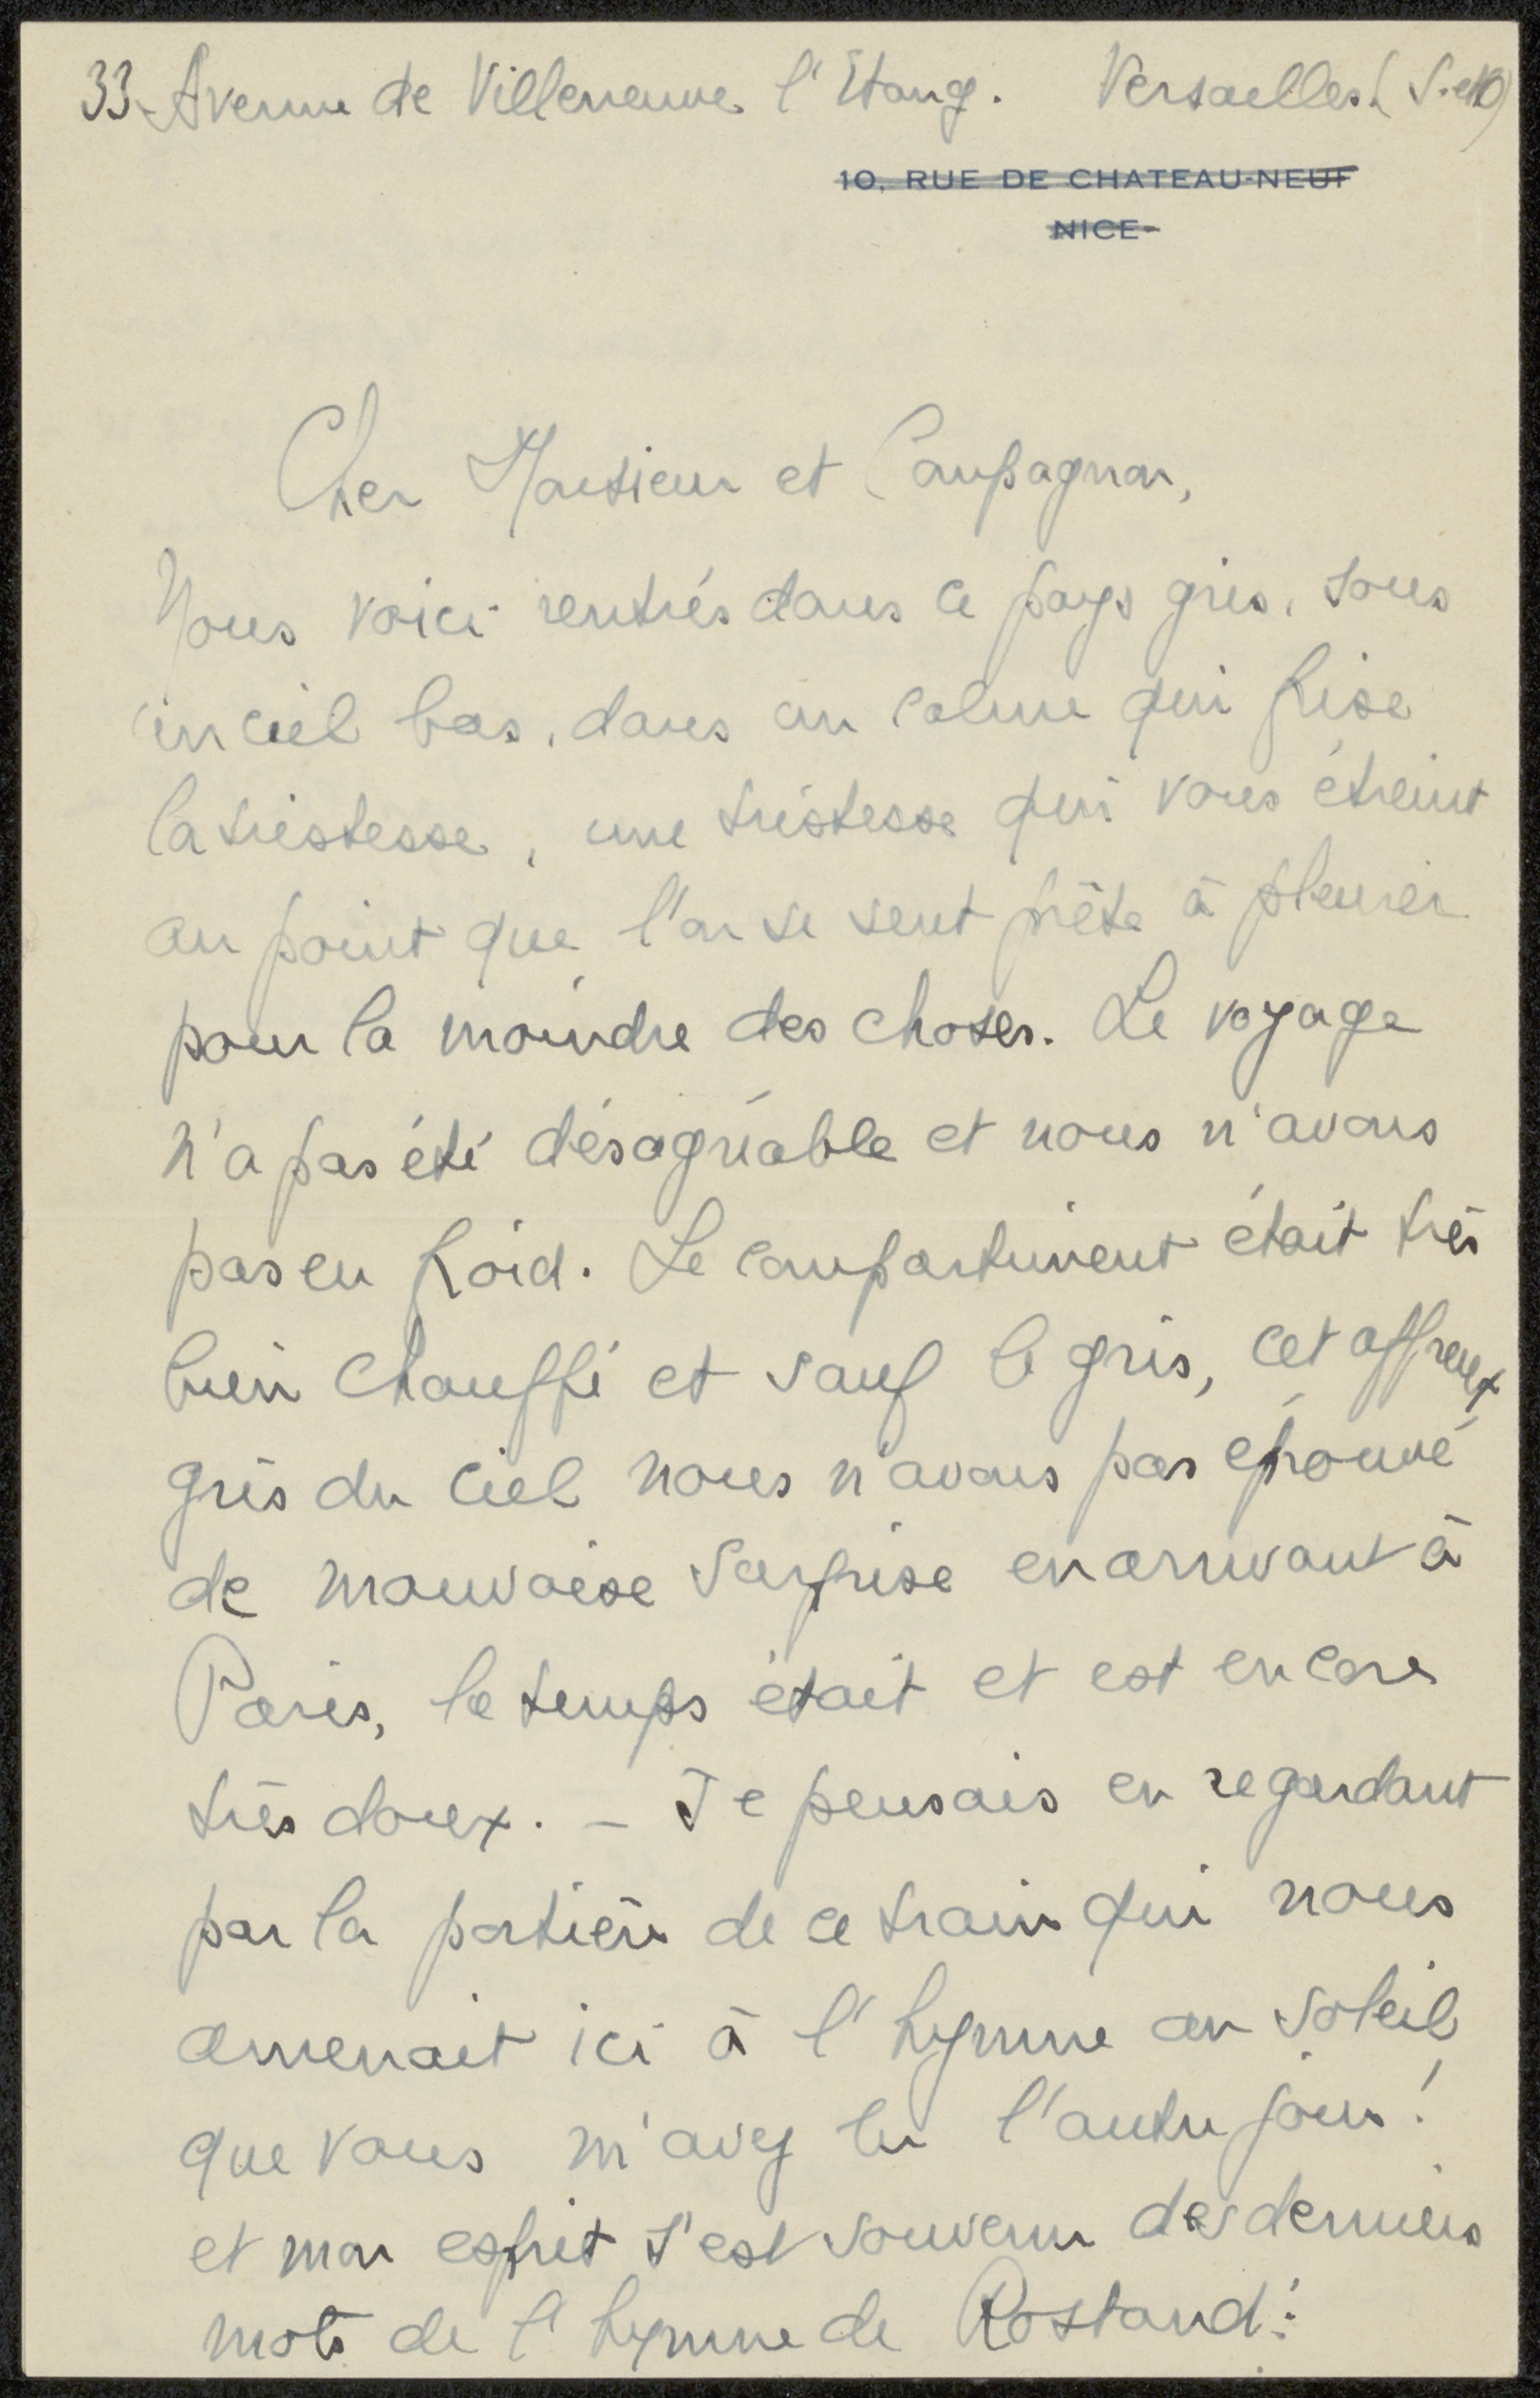 33 Avenue de Villeneuve l'Etang. Versailles. (S.etO)
10, RUE DE CHATEAU-NEUF
NICE
Cher Monsieur et Compagnon,
Nous voici rentrés dans ce pays gris, sous
un ciel bas, dans un calme qui frise
la tristesse, une tristesse qui vous étreint
au point que l'on se sent prête à pleurer
pour la moindre des choses. Le voyage
n'a pas été désagréable et nous n'avons
pas eu froid. Le compartiment était très
bien chauffé et sauf le gris, cet affreux
gris du ciel nous n'avons pas éprouvé
de mauvaise surprise en arrivant à
Paris, le temps était et est encore
très doux. - Je pensais en regardant
par la portière de ce train qui nous
amenait ici à l'hymne au soleil
que vous m'avez lu l'autre jour!
et mon esprit s'est souvenu des derniers
mots de l'hymne de Rostand: